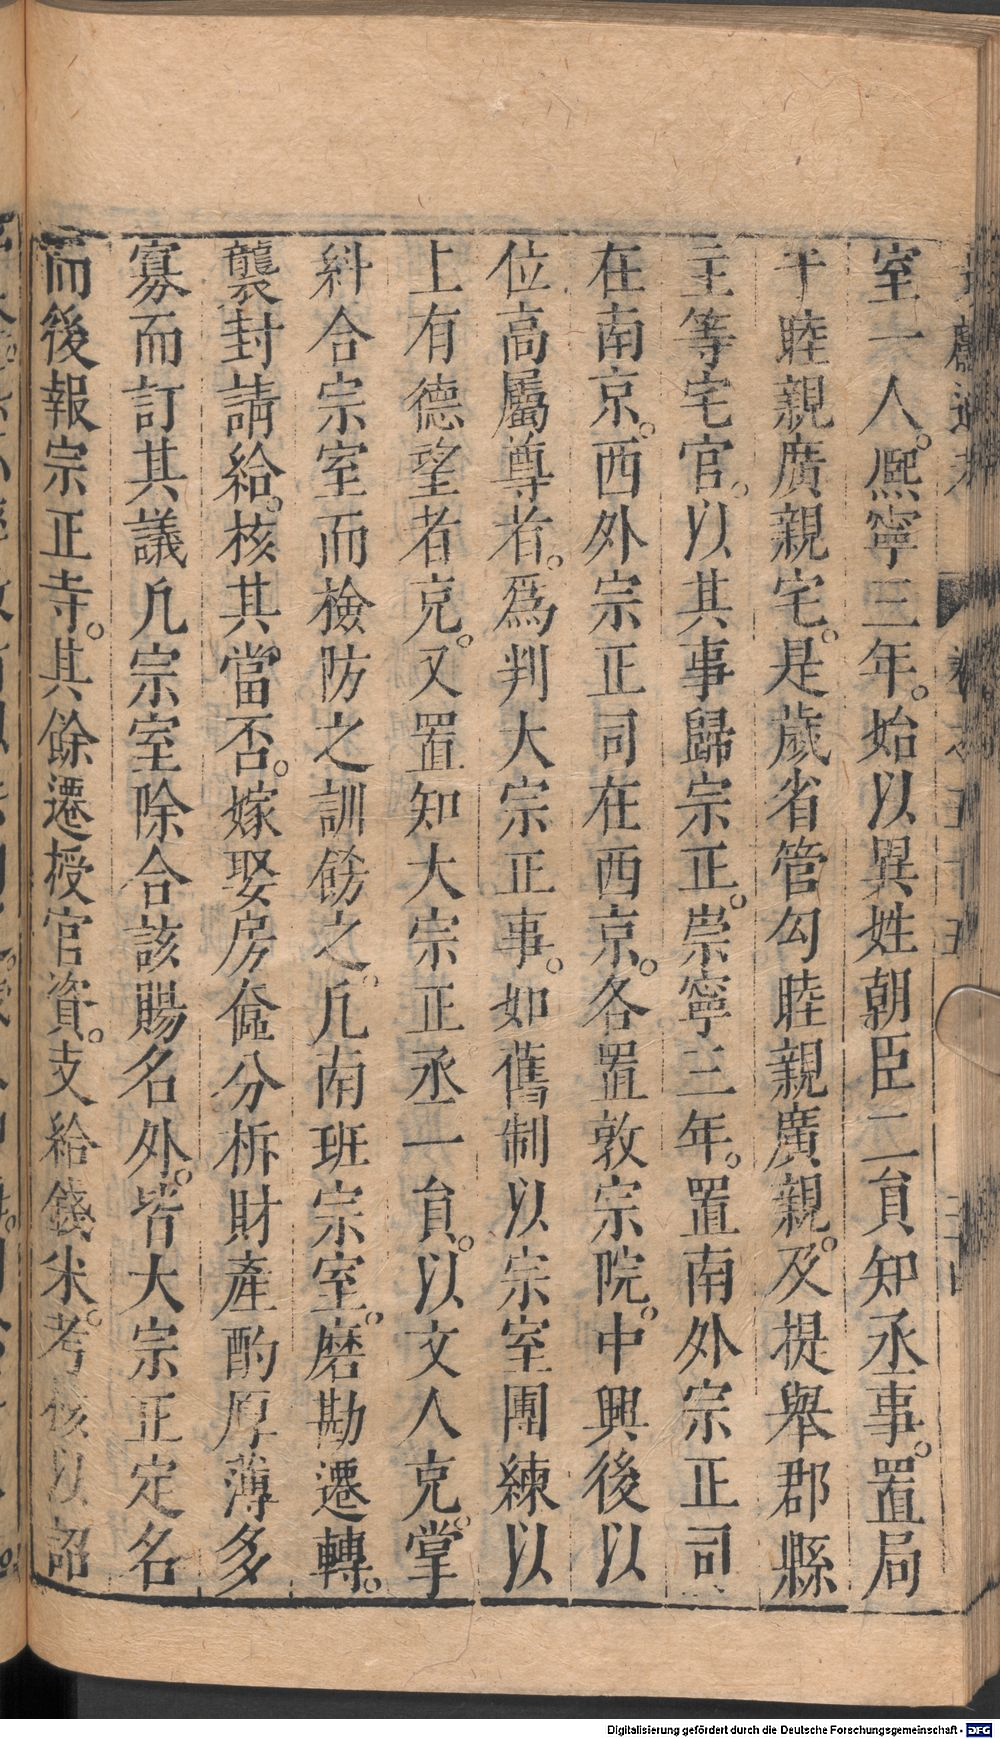 室一人。熈寧三年。始以異姓朝臣二員知丞事。置局
于睦親廣親宅。是歲省管勾睦親廣親。及提舉郡縣
主等宅官。以其事歸宗正。崇寧三年。置南外宗正司
在南京。西外宗正司在西京。各置敦宗院。中興後以
位高屬尊者。爲判大宗正事。如舊制以宗室團練以
上有德望者克。又置知大宗正丞一員。以文人克。掌
糾合宗室而檢防之訓飭之。凢南班宗室。磨勘遷轉。
襲封請給。核其當否。嫁娶房奩分析財產酌厚薄多
寡而訂其議凢宗室除合該賜名外。皆大宗正定名
而後報宗正寺。其餘遷授官資。支給錢米。考核以詔
Digitalisierung gefördert durch die Deutsche Forschungsgemeinschaft - DFG